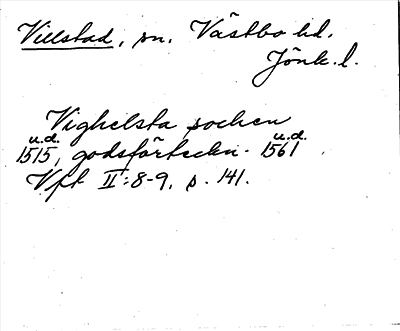 Villstad, sn. Västbo hd.
Jönk. l.
Vighelsta sochen
u.d. u.d.
1515, godsförteckn. 1561.
Vft II:8-9, s. 141.